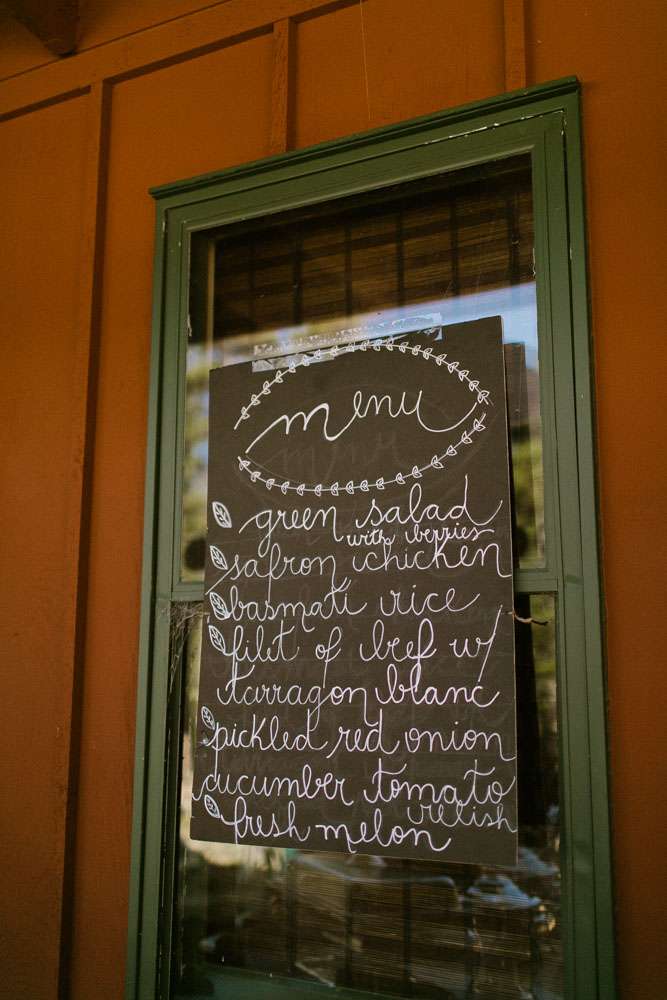 menu
green salad
with berries
safron chicken
basmati rice
filet of beef w/
tarragon blanc
pickled red onion
cucumber tomato
relish
fresh melon